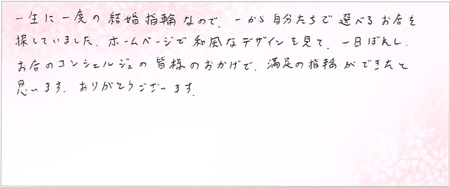 一生に一度の結婚指輪なので、一から自分たちで選べるお店を
探していました。ホームページで和風なデザインを見て、一目ぼれし、
お店のコンシェルジュの皆様のおかげで、満足の指輪ができたと
思います。ありがとうございます。